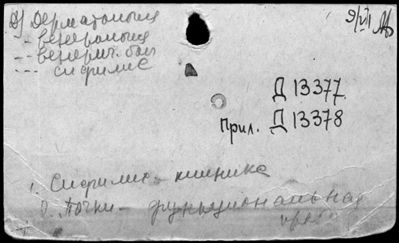 Д) Дерматология
- венерология
- венерич. бол
--- сифилис
9/VII
Д 13377
Прил. Д 13378
1. Сифилис - клиника
2. Почки - функциональная